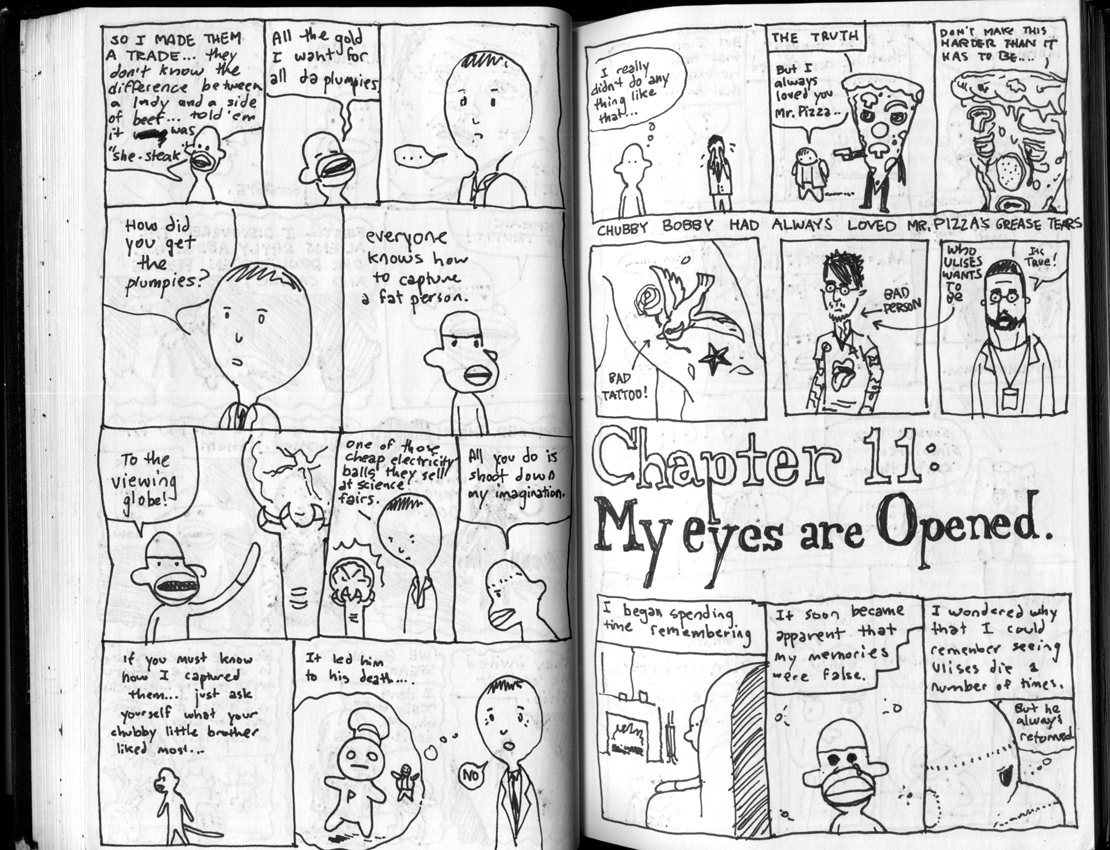 SO I MADE THEM
A TRADE... they
don't know the
difference between
a lady and a side
of beef... told 'em
it was
"she-steak"
All the gold
I want for
all da plumpies
...
How did
you get
the
plumpies?
everyone
knows how
to capture
a fat person.
To the
viewing
globe!
one of those
cheap electricity
balls they sell
at science
fairs.
All you do is
shoot down
my imagination.
If you must know
how I captured
them... just ask
yourself what your
chubby little brother
liked most...
It led him
to his death...
P
NO
I really
didn't do any
thing like
that...
THE TRUTH
But I
always
loved you
Mr. Pizza..
DON'T MAKE THIS
HARDER THAN IT
HAS TO BE....
CHUBBY BOBBY HAD ALWAYS LOVED MR. PIZZA'S GREASE TEARS
BAD
TATTOO!
BAD
PERSON
WHO
ULISES
WANTS
TO
BE
Its
TRUE!
Chapter 11:
My eyes are Opened.
I began spending
time remembering
It soon became
apparent that
my memories
were false.
I wondered why
that I could
remember seeing
Ulises die a
number of times.
But he
always
returned